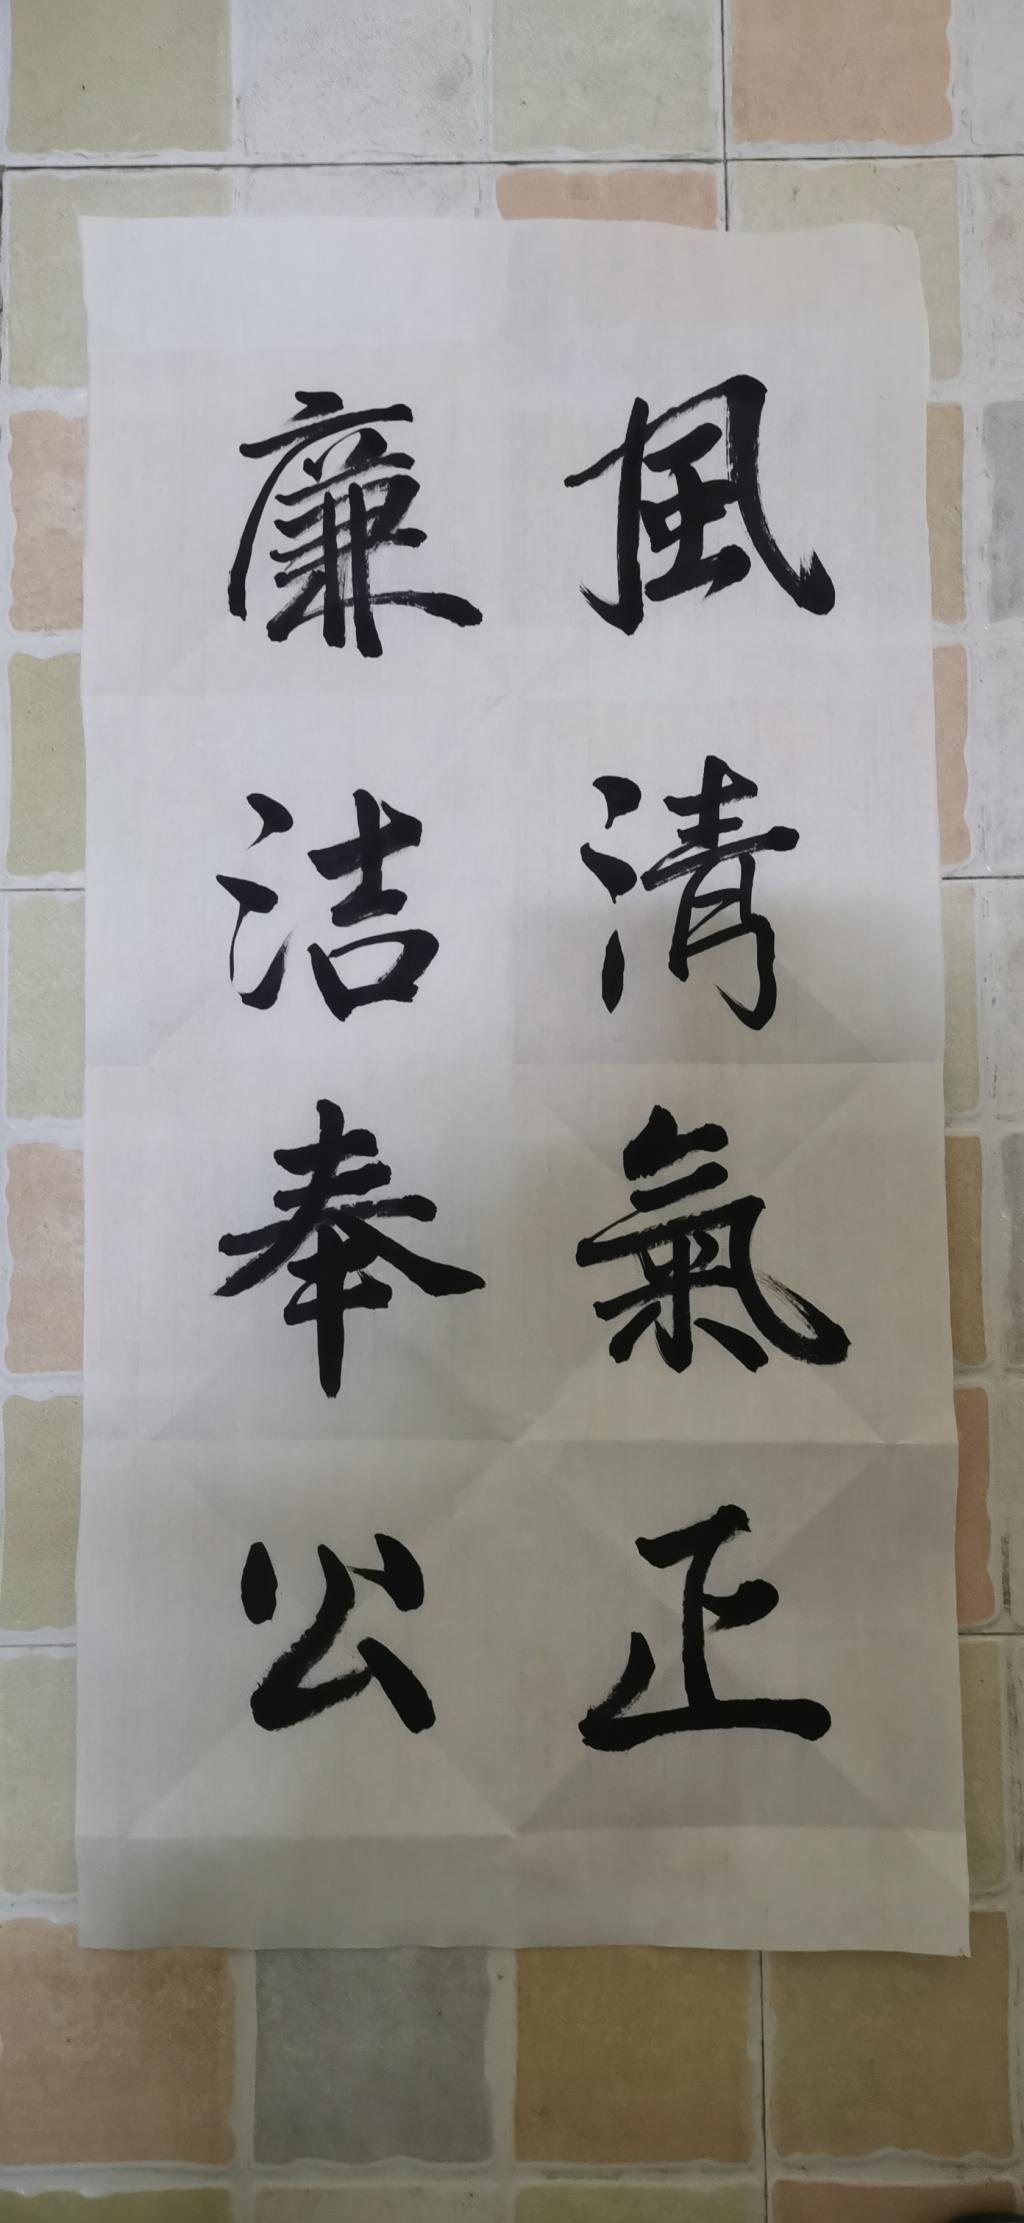 風清氣正
廉洁奉公